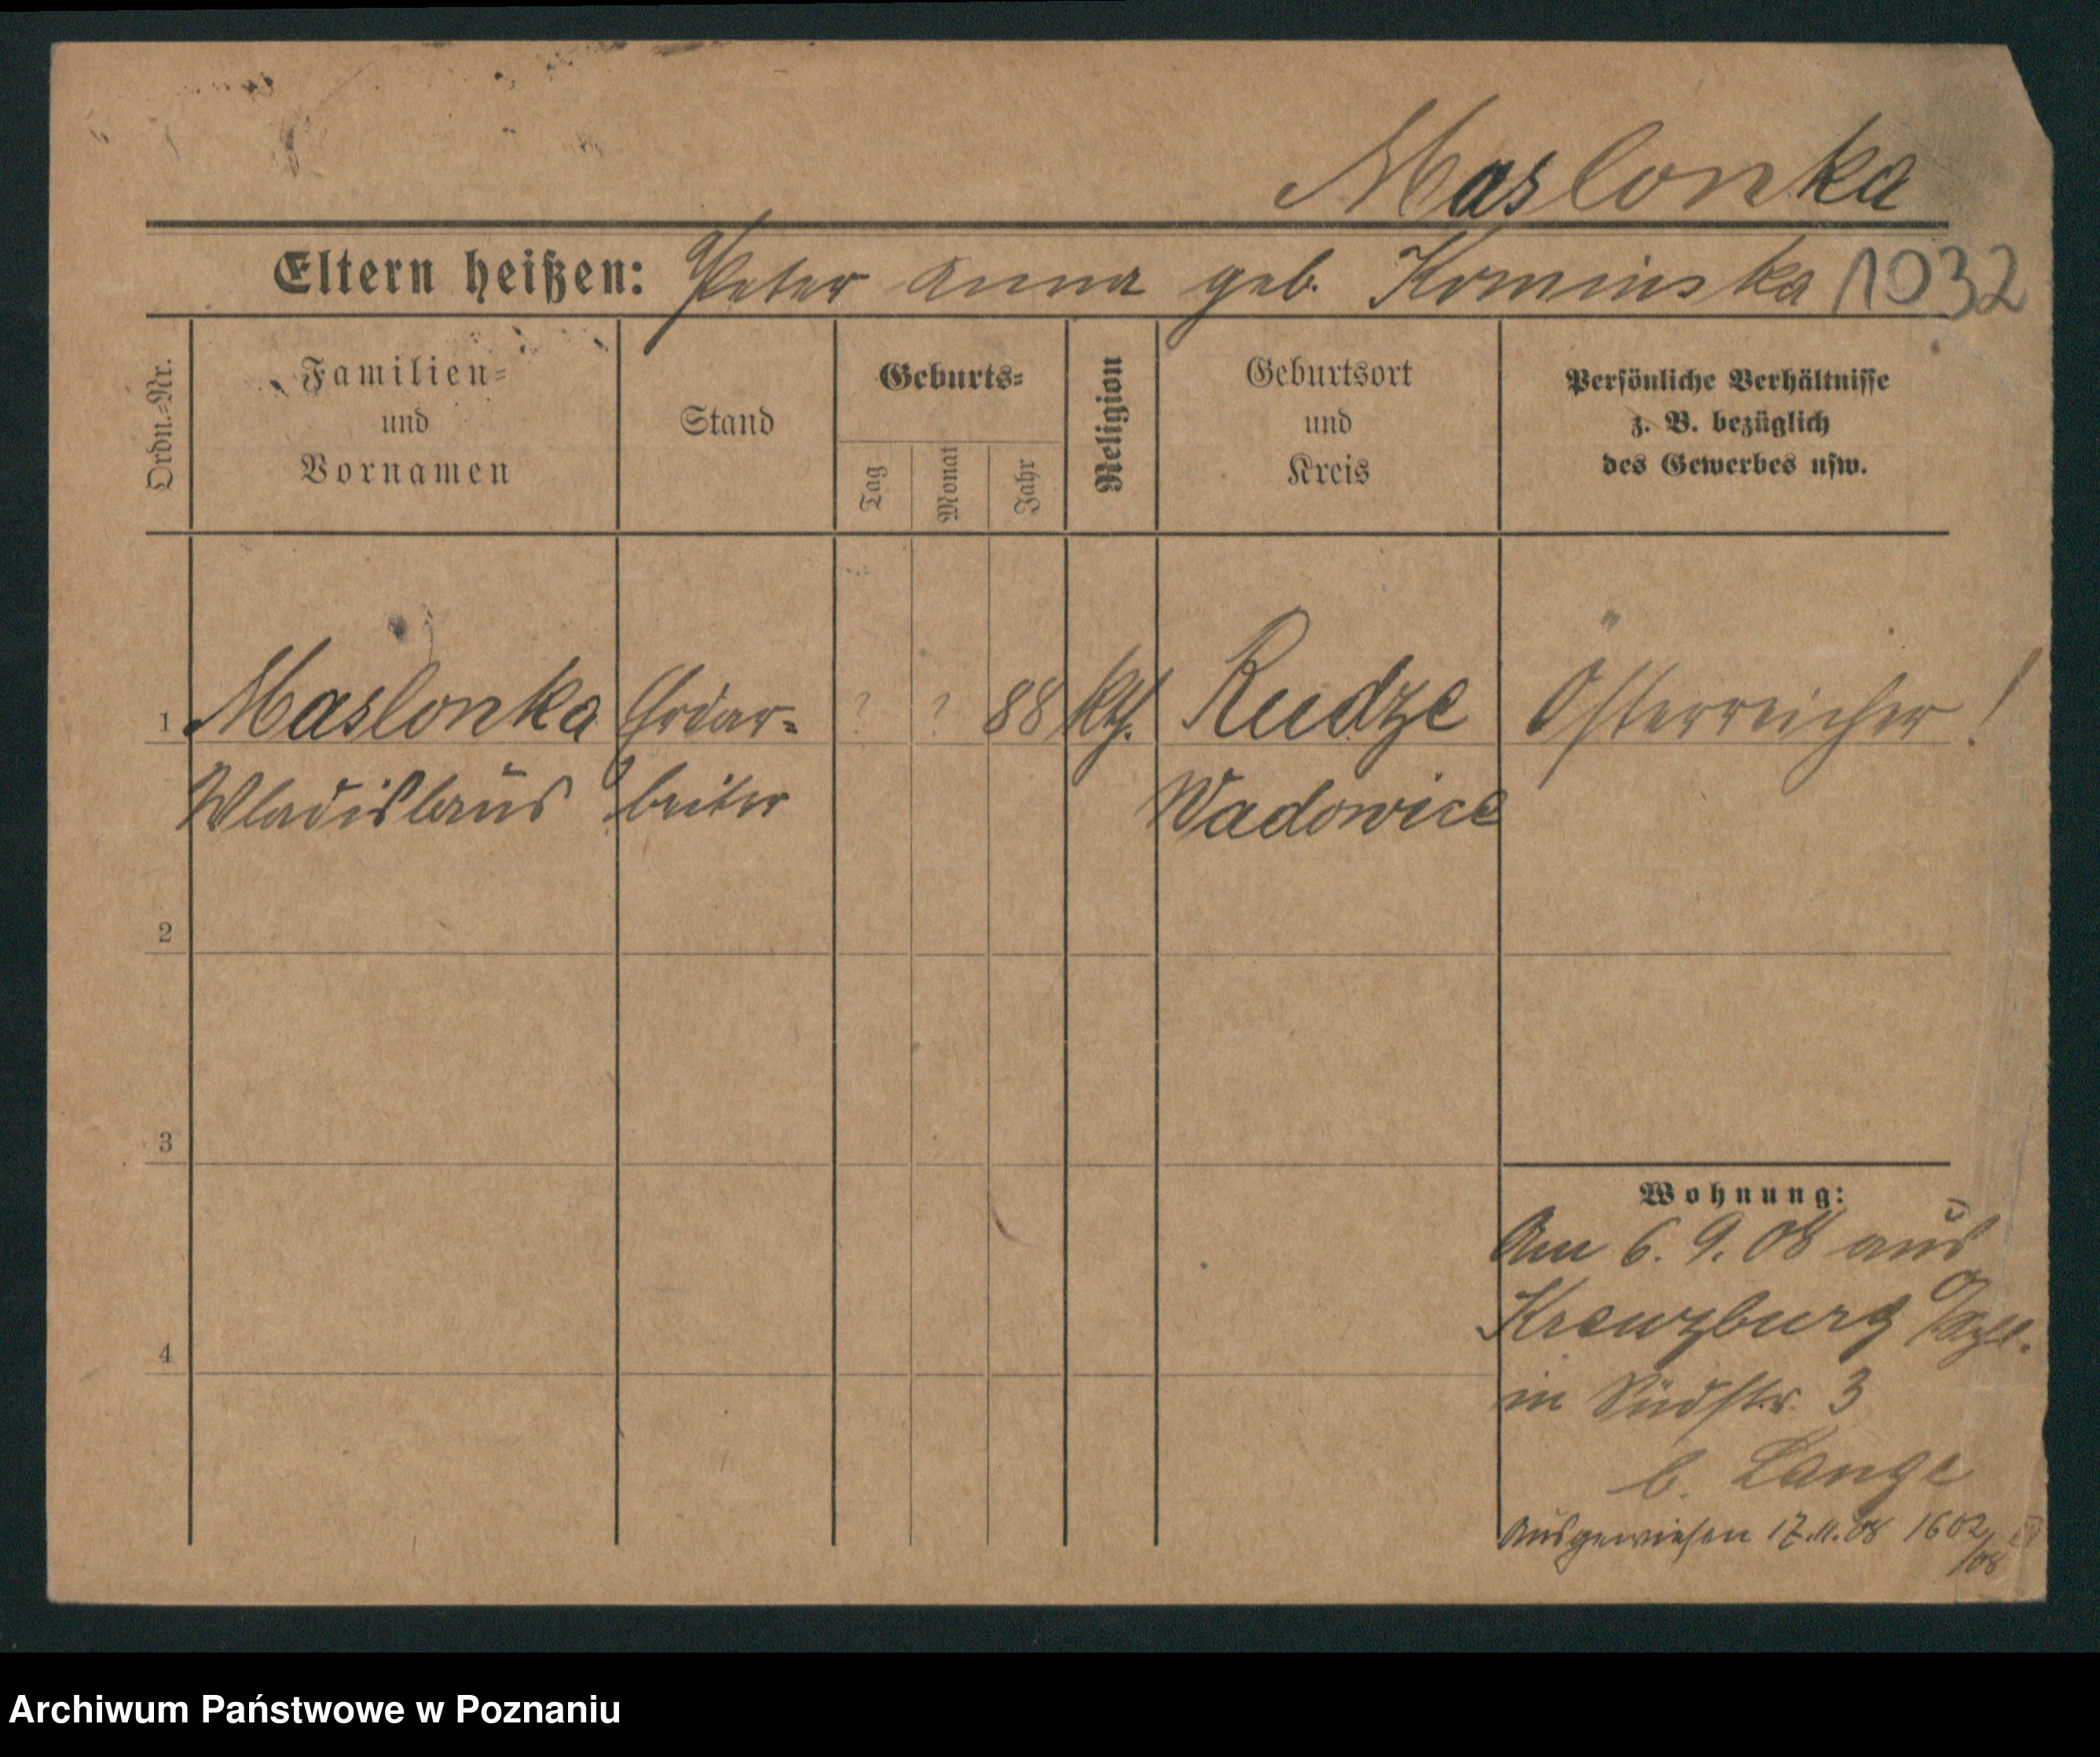 Maslonka
Eltern heißen: Peter Anna geb. Kominska 1032
Ordn.=Nr.
Familien=
und
Vornamen
Stand
Geburts=
Tag
Monat
Jahr
Religion
Geburtsort
und
Kreis
Persönliche Verhältnisse
z. B. bezüglich
des Gewerbes usw.
1 Maslonka Erdar= ? ? 88 kth. Rudze Österreicher!
Wladislaus beiter Wadowice
2
3
4
Wohnung:
Am 6. 9. 08 aus
Kreuzburg
in Südstr. 3
b. Lange
Ausgewiesen 17.11.08 1602/08
Archiwum Państwowe w Poznaniu